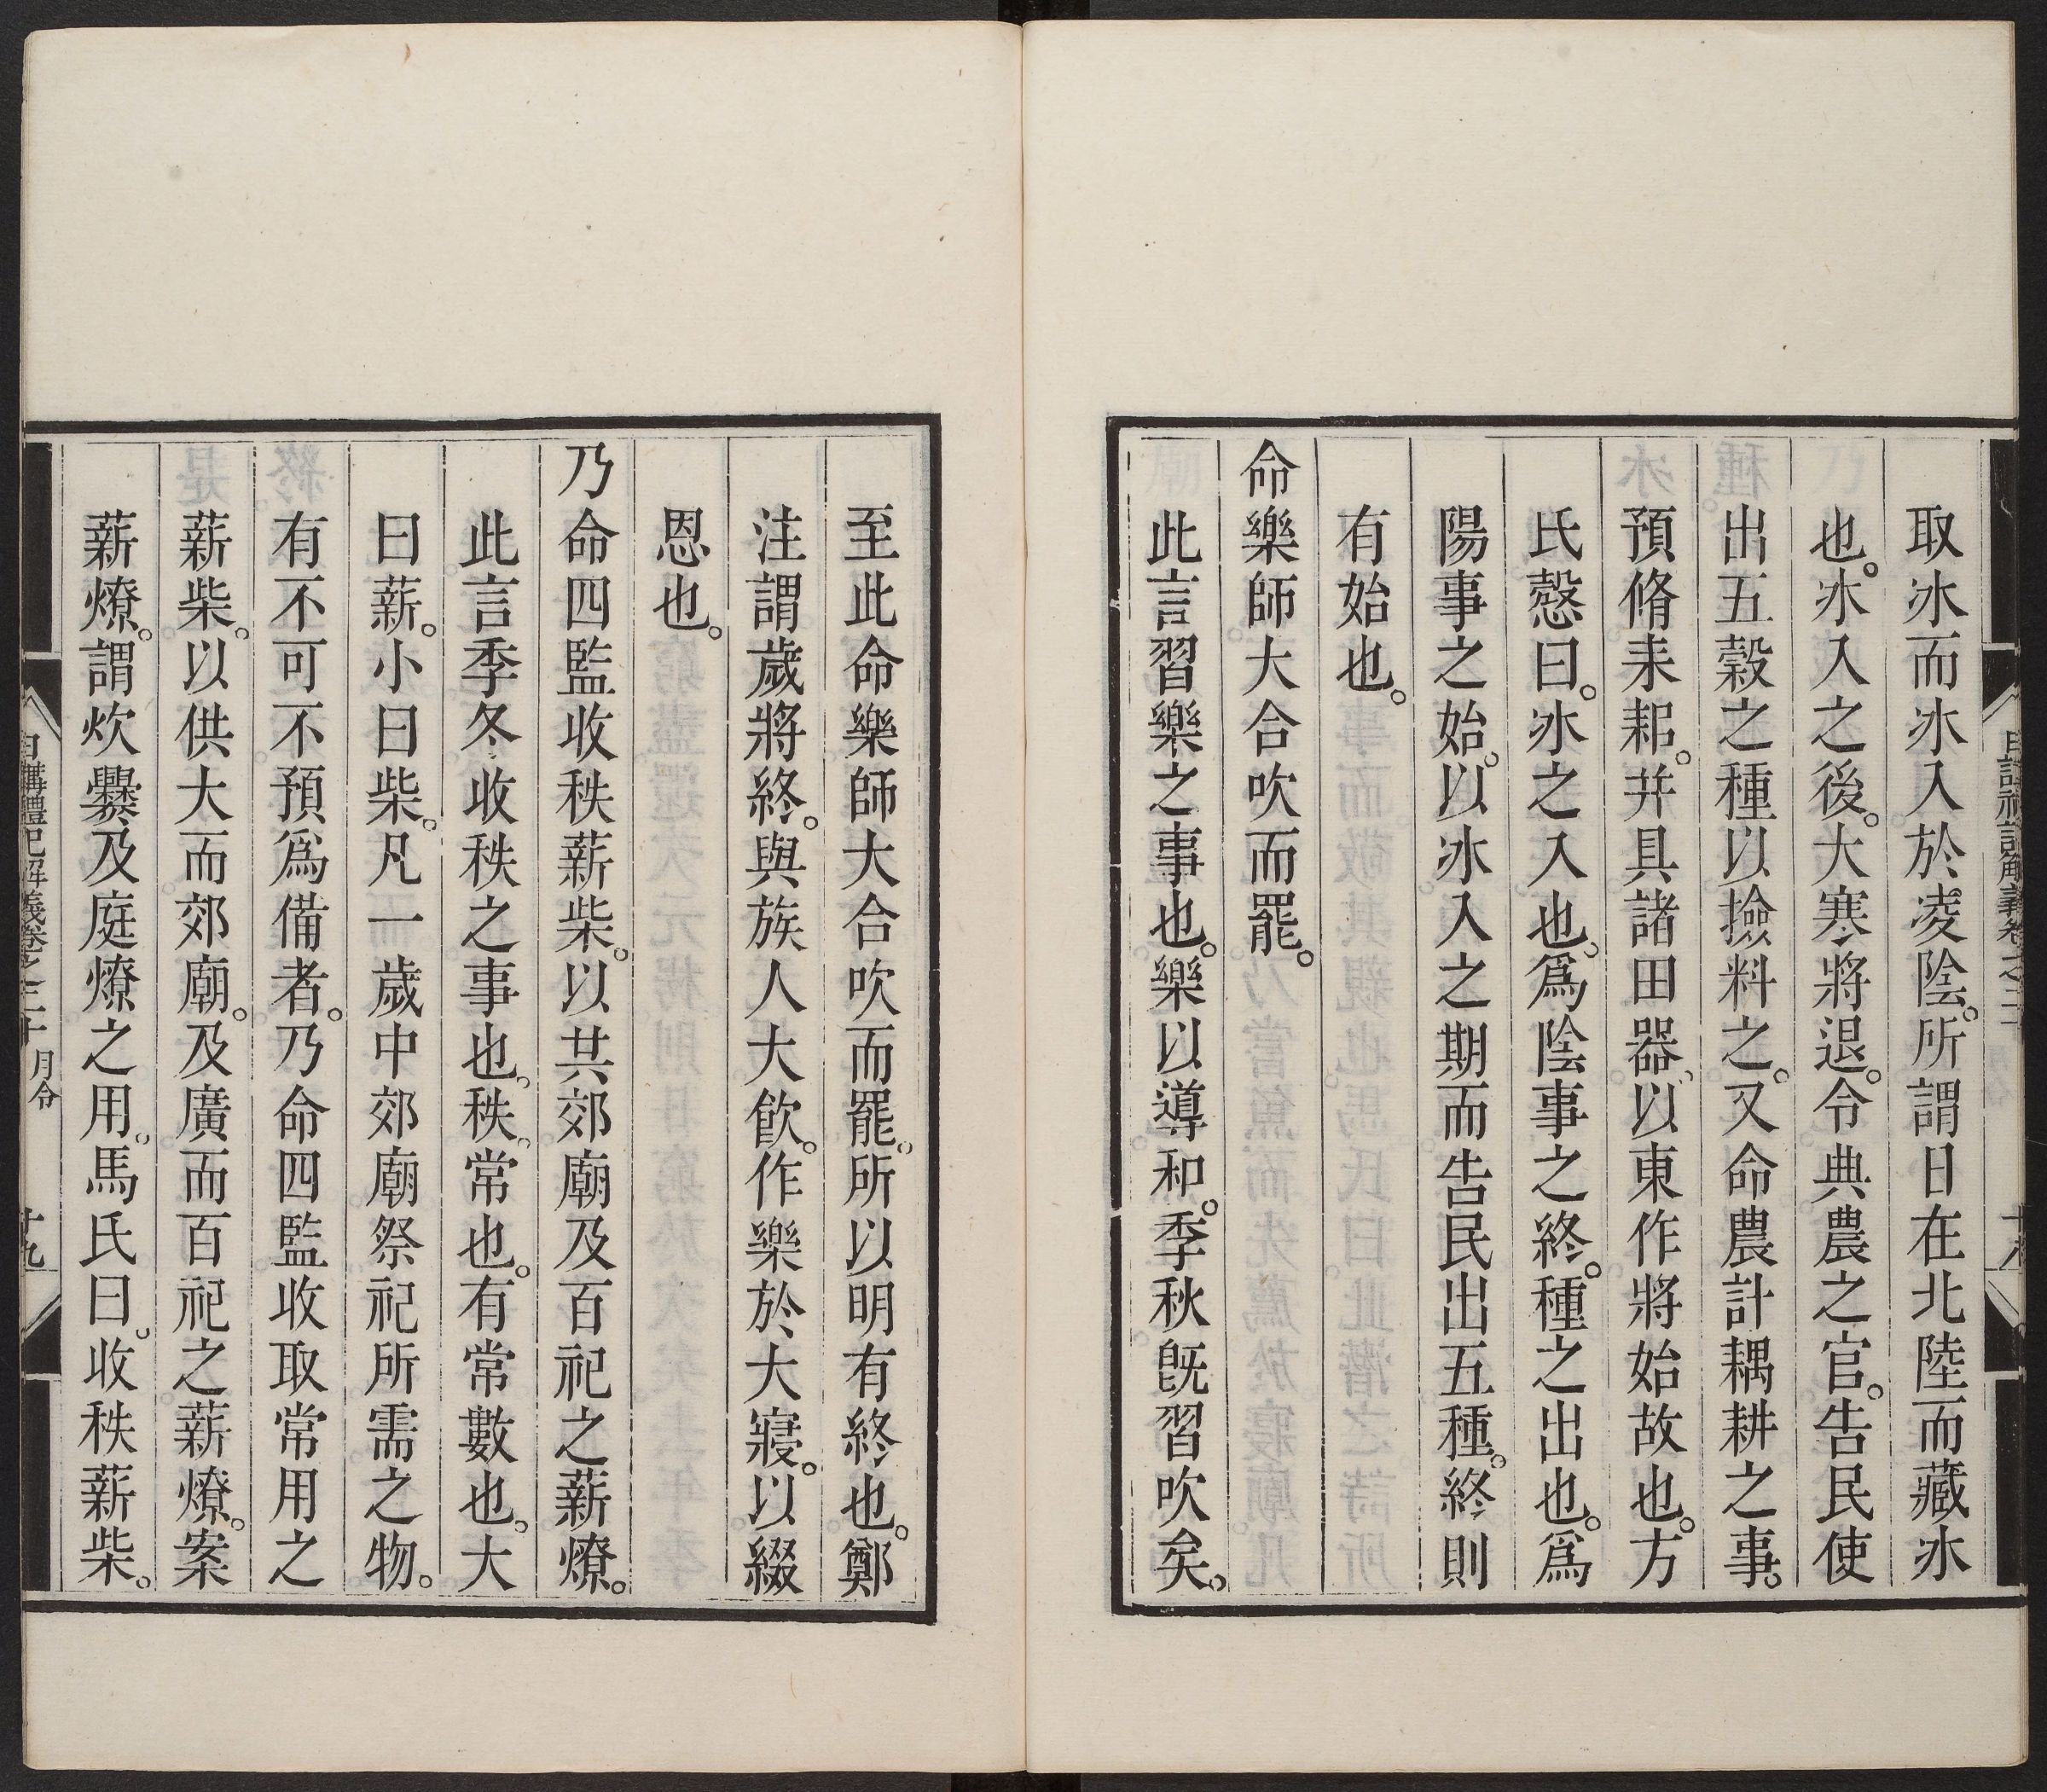 取冰而冰入於凌陰。所謂日在北陸而藏冰
也。冰入之後。大寒將退。令典農之官。告民使
出五穀之種以撿料之。又命農計耦耕之事。
預脩耒耜。并具諸田器。以東作將始故也。方
氏慤曰。冰之入也。爲陰事之終。種之出也。爲
陽事之始。以冰入之期而告民出五種。終則
有始也。
命樂師大合吹而罷。
此言習樂之事也。樂以導和。季秋旣習吹矣。
至此命樂師大合吹而罷。所以明有終也。鄭
注謂歲將終。與族人大飮。作樂於大寢。以綴
恩也。
乃命四監收秩薪柴。以共郊廟及百祀之薪燎。
此言季冬收秩之事也。秩。常也。有常數也。大
曰薪。小曰柴。凡一歲中郊廟祭祀所需之物。
有不可不預爲備者。乃命四監收取常用之
薪柴。以供大而郊廟。及廣而百祀之薪燎。案
薪燎。謂炊爨及庭燎之用。馬氏曰。收秩薪柴。
日講禮記解義卷之二十 月令 十九